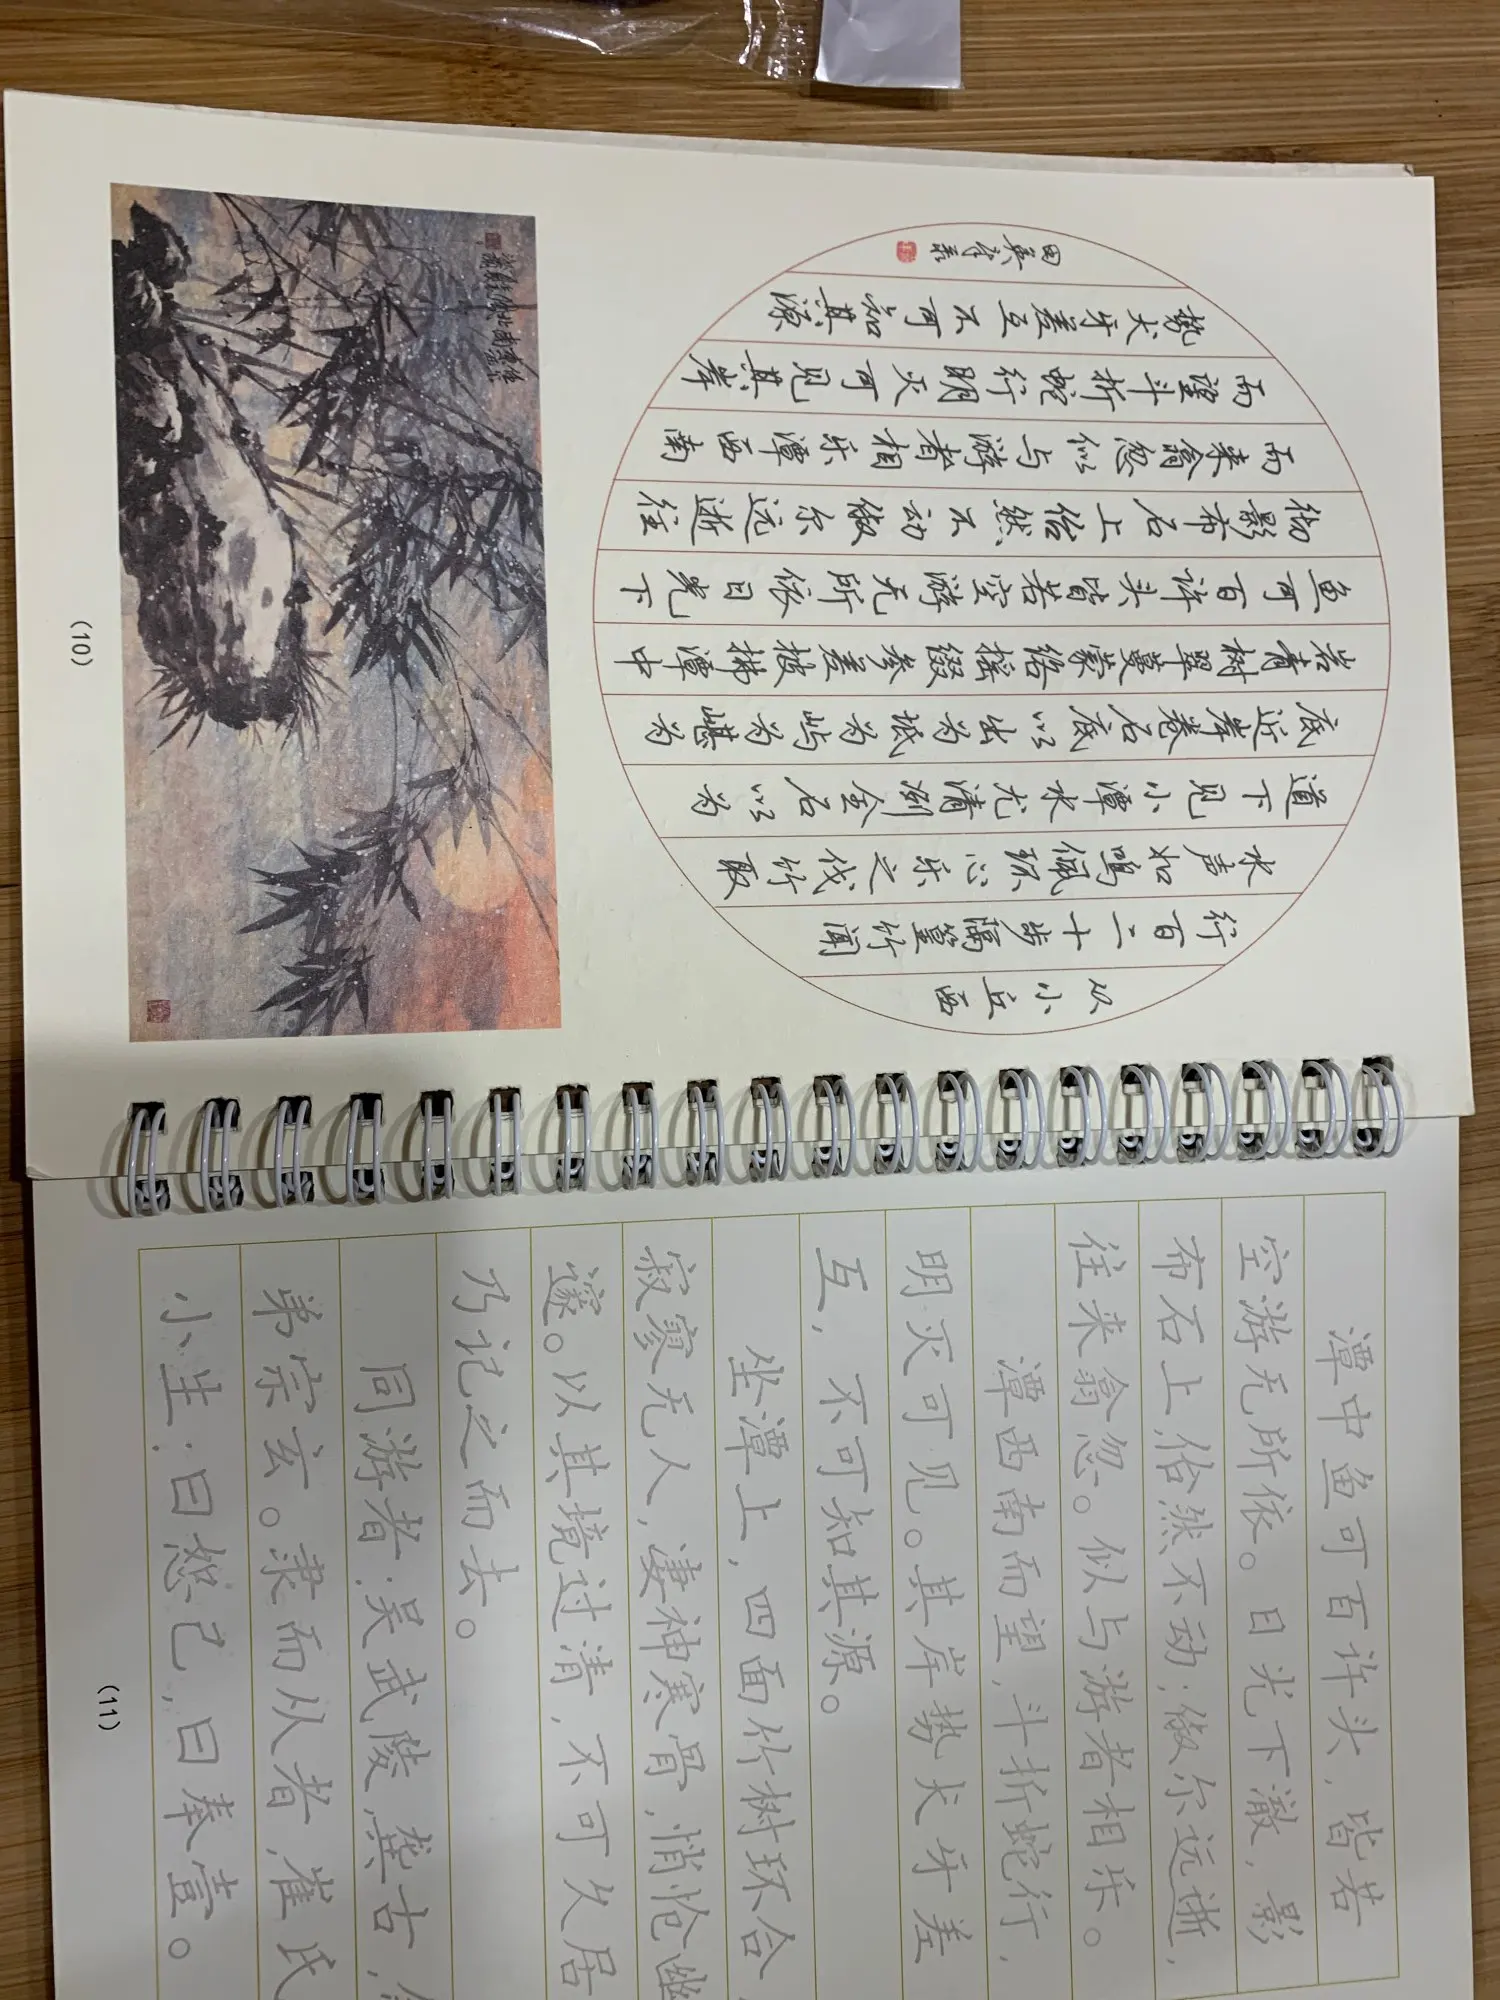 从小丘西
行百二十步隔篁竹闻
水声如鸣佩环心乐之伐竹取
道下见小潭水尤清冽全石以为
底近岸卷石底以出为坻为屿为嵁为
岩青树翠蔓蒙络摇缀参差披拂潭中
鱼可百许头皆若空游无所依日光下
彻影布石上佁然不动俶尔远逝往
而来翕忽似与游者相乐潭西南
而望斗折蛇行明灭可见其岸
势犬牙差互不可知其源
田英章
(10)
潭中鱼可百许头，皆若
空游无所依。日光下澈，影
布石上，佁然不动；俶尔远逝，
往来翕忽。似与游者相乐。
潭西南而望，斗折蛇行，
明灭可见。其岸势犬牙差
互，不可知其源。
坐潭上，四面竹树环合，
寂寥无人，凄神寒骨，悄怆幽
邃。以其境过清，不可久居
乃记之而去。
同游者：吴武陵，龚古，
弟宗玄。隶而从者，崔氏
小生：曰恕己，曰奉壹。
(11)